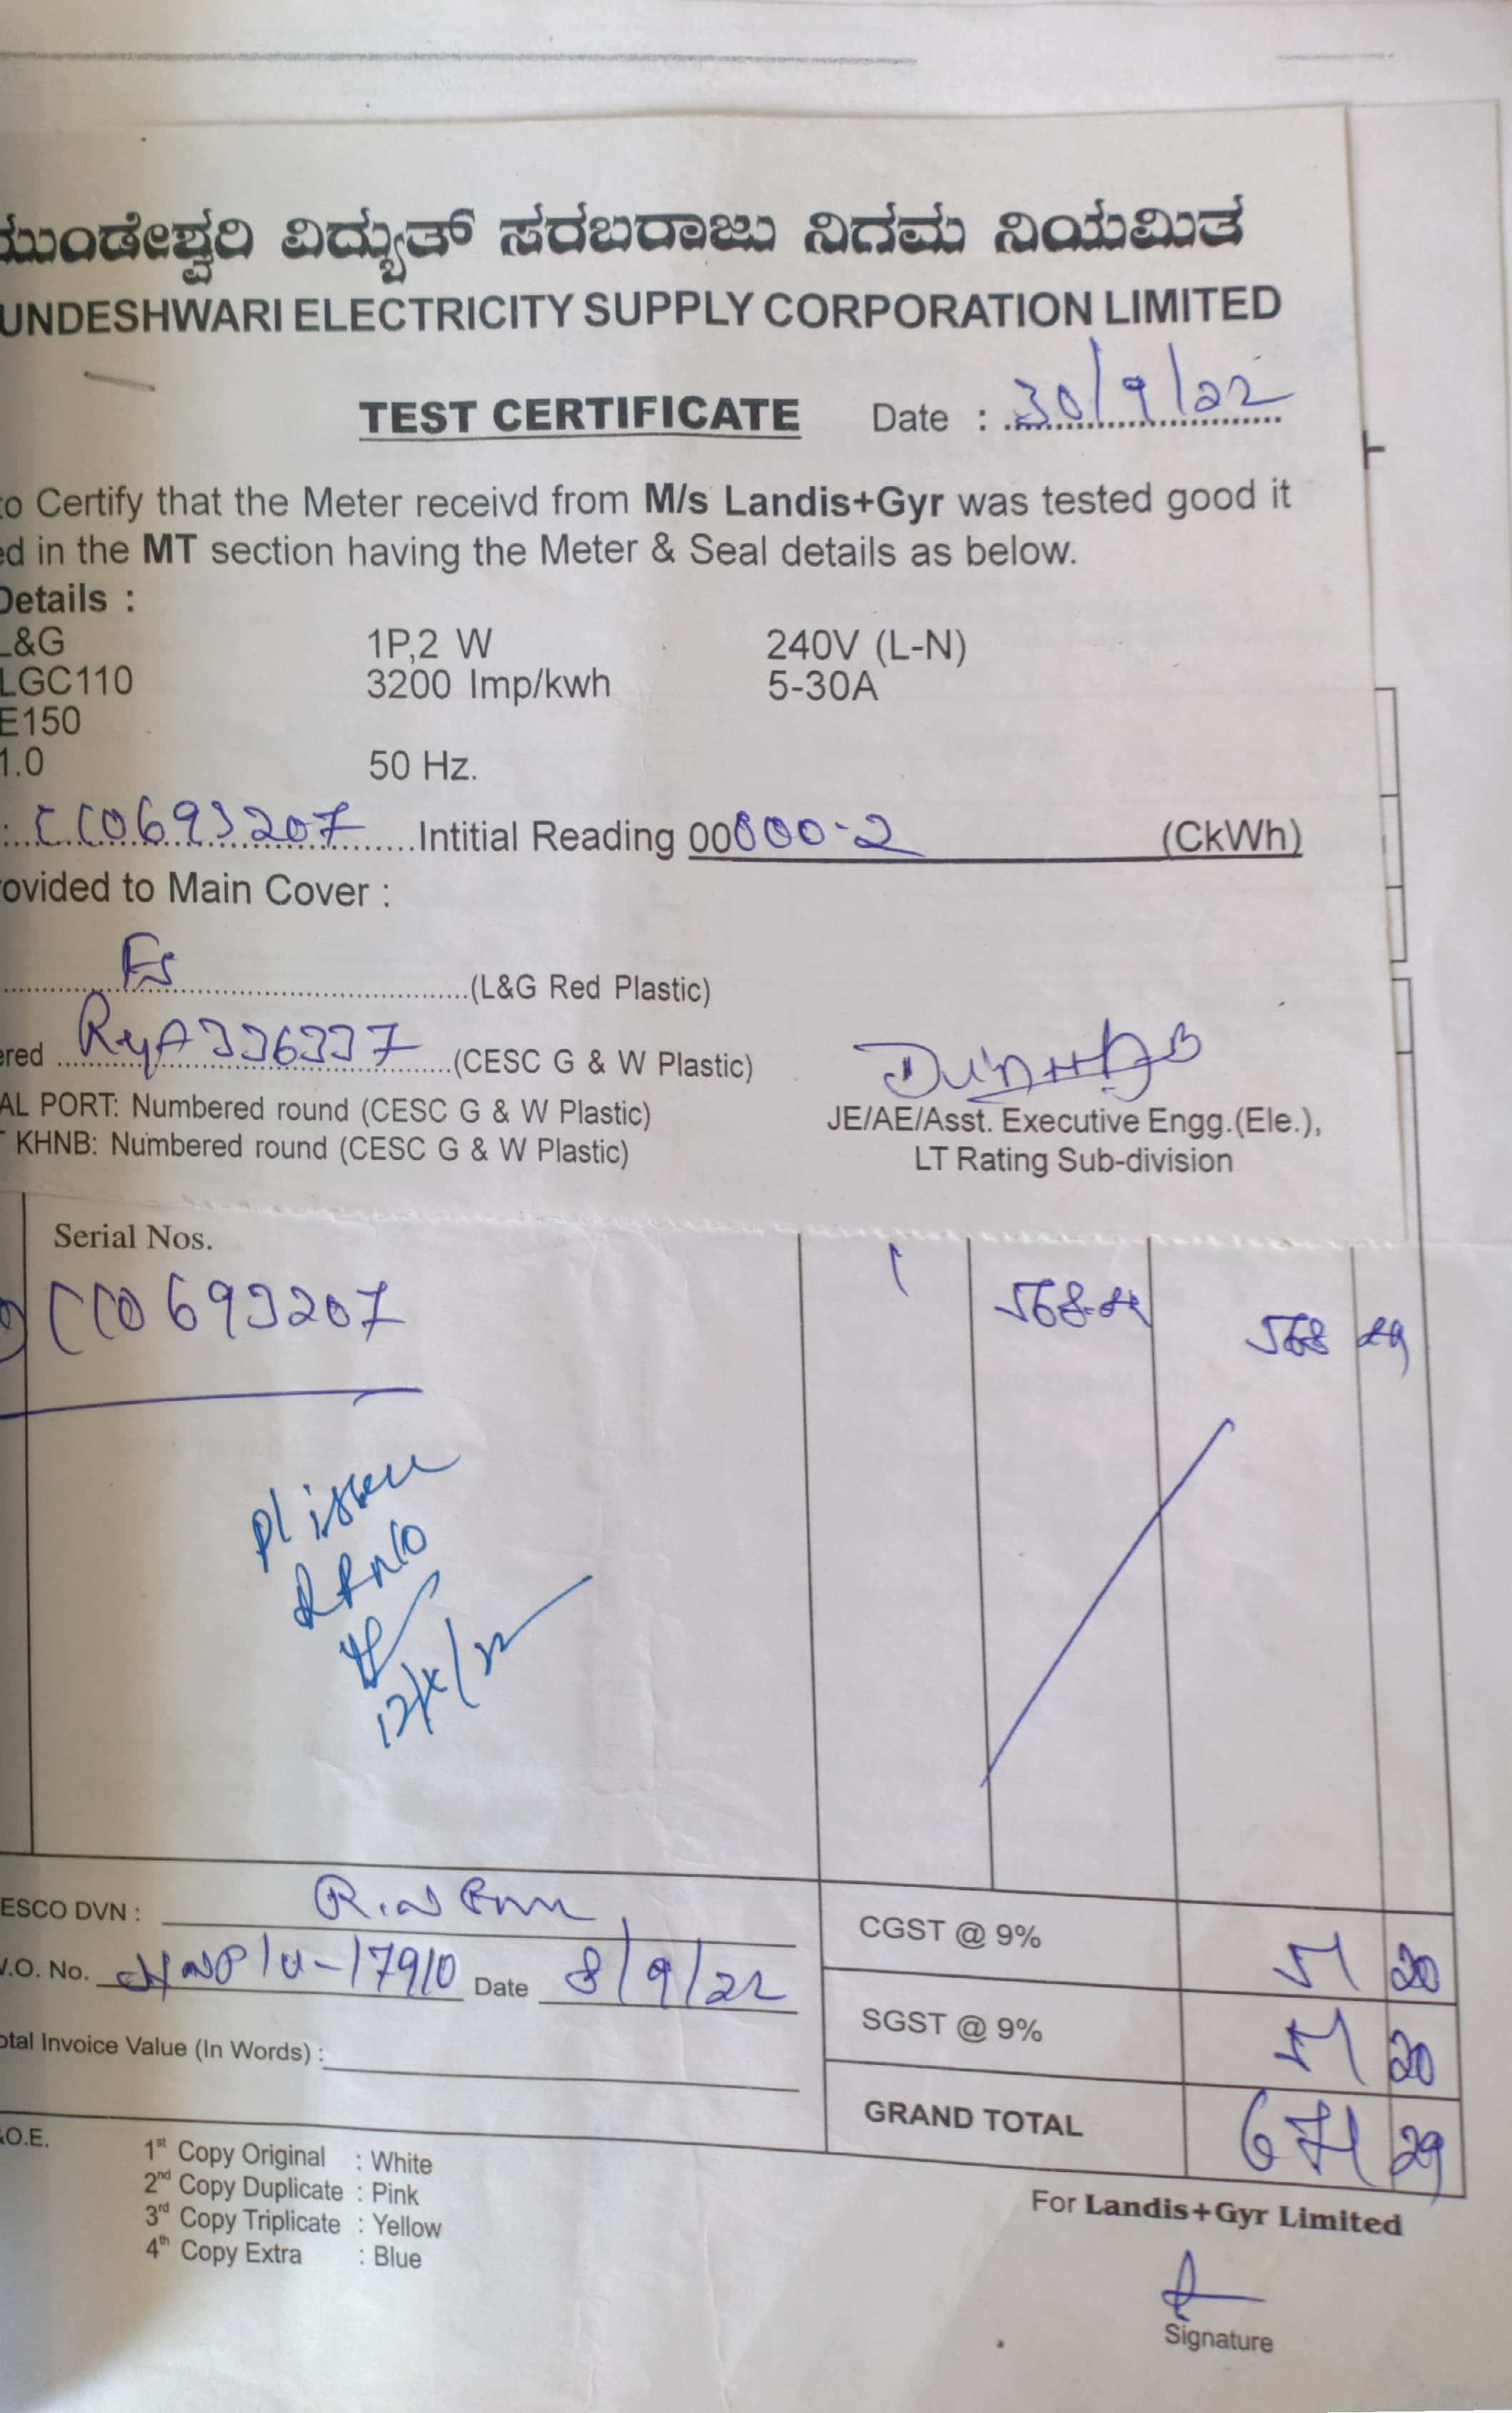 ಮುಂಡೇಶ್ವರಿ ವಿದ್ಯುತ್ ಸರಬರಾಜು ನಿಗಮ ನಿಯಮಿತ
UNDESHWARI ELECTRICITY SUPPLY CORPORATION LIMITED
TEST CERTIFICATE Date : 30/9/22
to Certify that the Meter receivd from M/s Landis+Gyr was tested good it
ed in the MT section having the Meter & Seal details as below.
Details :
L&G 1P,2 W 240V (L-N)
LGC110 3200 Imp/kwh 5-30A
E150
1.0 50 Hz.
: CC0693207 Intitial Reading 00000-2 (CkWh)
ovided to Main Cover :
Fs (L&G Red Plastic)
ered RyA336337 (CESC G & W Plastic)
AL PORT: Numbered round (CESC G & W Plastic)
KHNB: Numbered round (CESC G & W Plastic)
JE/AE/Asst. Executive Engg.(Ele.),
LT Rating Sub-division
Serial Nos.
CC0693207 1 568-89 568 89
Pl issue
RRNO
12/X/22
ESCO DVN :
V.O. No. 17910 Date 8/9/22
otal Invoice Value (In Words) :
CGST @ 9% 51 20
SGST @ 9% 51 20
GRAND TOTAL 671 29
&O.E.
1st Copy Original : White
2nd Copy Duplicate : Pink
3rd Copy Triplicate : Yellow
4th Copy Extra : Blue
For Landis+Gyr Limited
Signature